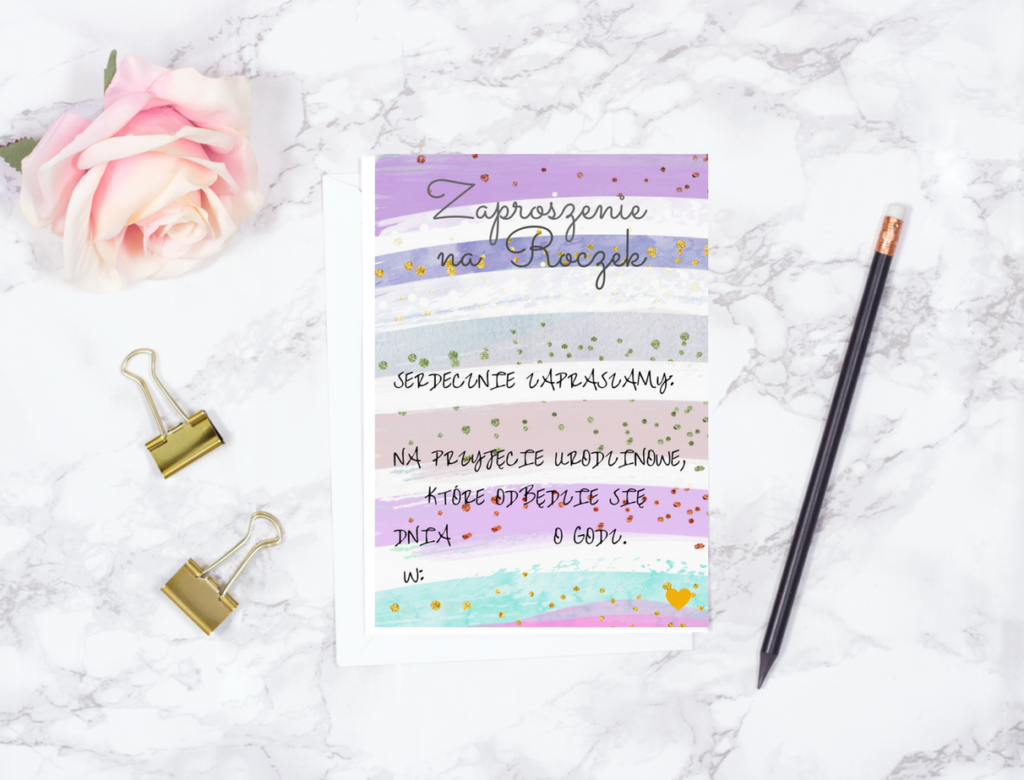 Zaproszenie
na Roczek
SERDECZNIE ZAPRASZAMY:
NA PRZYJĘCIE URODZINOWE,
KTÓRE ODBĘDZIE SIĘ
DNIA O GODZ.
W: